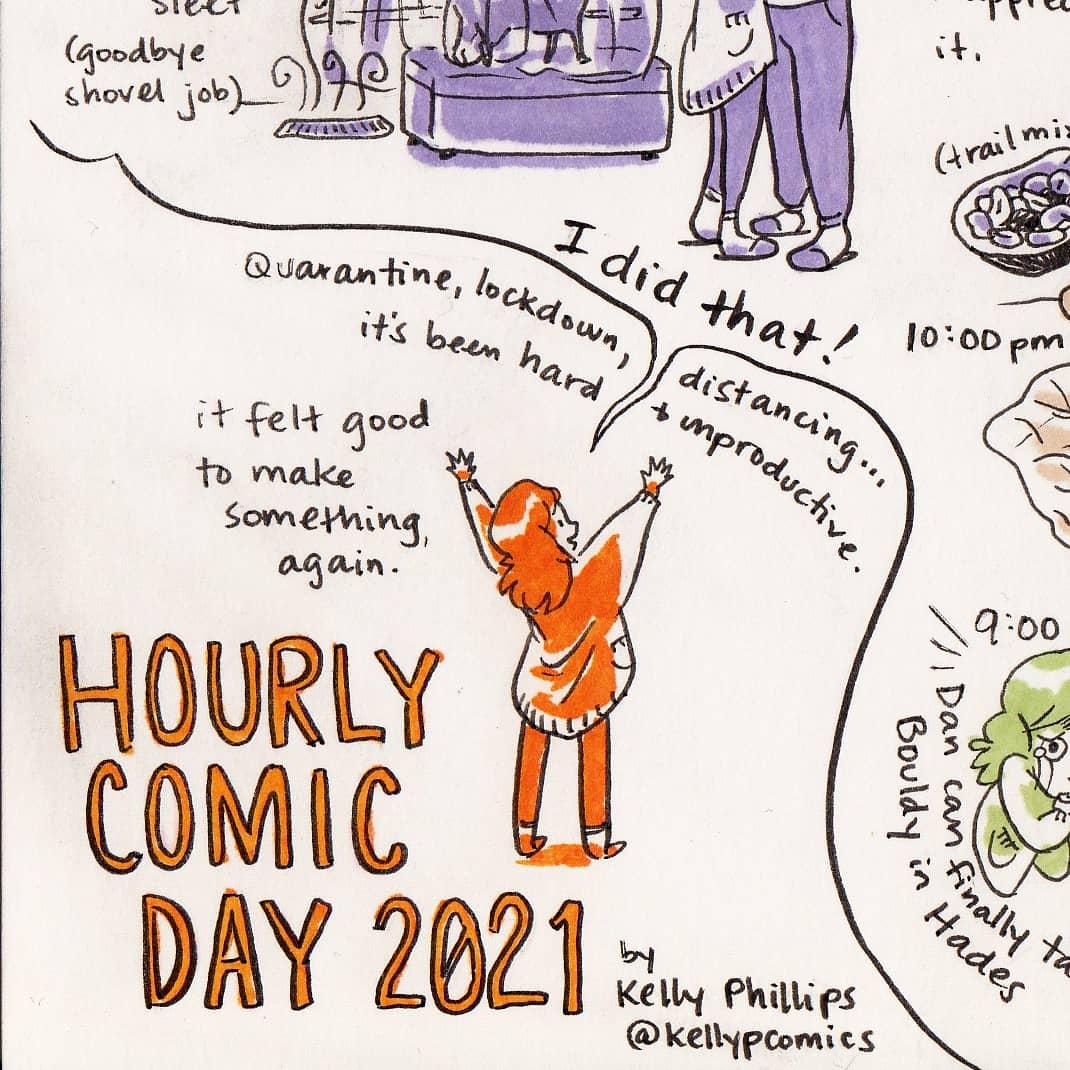 sleet
(goodbye
shovel job)
it.
(trail mix
I did that!
Quarantine, lockdown,
it's been hard
distancing...
+ unproductive.
10:00 pm
it felt good
to make
something,
again.
9:00
Dan can finally ta
Bouldy in
Hades
HOURLY
COMIC
DAY 2021
by
Kelly Phillips
@kellypcomics